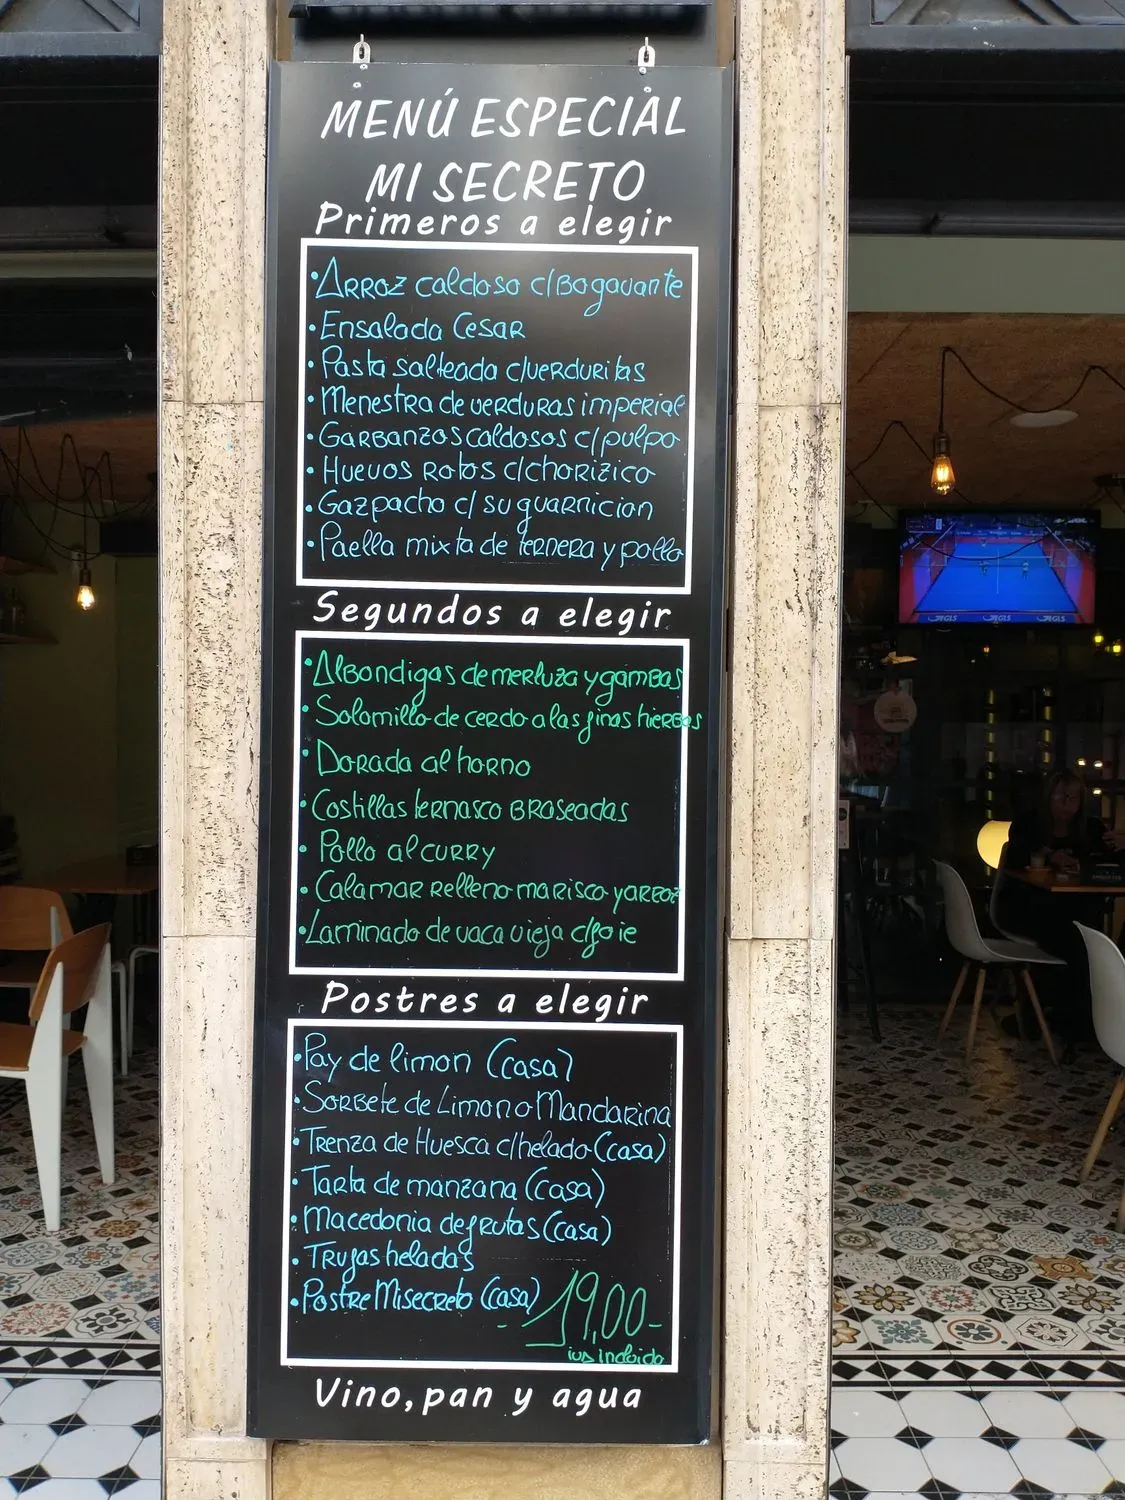 MENÚ ESPECIAL
MI SECRETO
Primeros a elegir
• Arroz caldoso c/Bogavante
• Ensalada Cesar
• Pasta salteada c/verduritas
• Menestra de verduras imperial
• Garbanzos caldosos c/pulpo
• Huevos Rotos c/chorizico
• Gazpacho c/ su guarnicion
• Paella mixta de ternera y pollo
Segundos a elegir
• Albondigas de merluza y gambas
• Solomillo de cerdo a las finas hierbas
• Dorada al horno
• Costillas ternasco Braseadas
• Pollo al curry
• Calamar Relleno marisco y arroz
• Laminado de vaca vieja c/foie
Postres a elegir
• Pay de limon (casa)
• Sorbete de Limon o Mandarina
• Trenza de Huesca c/helado (casa)
• Tarta de manzana (casa)
• Macedonia de frutas (casa)
• Trufas heladas
• Postre Misecreto (casa)
- 19,00-
iva incluido
Vino, pan y agua